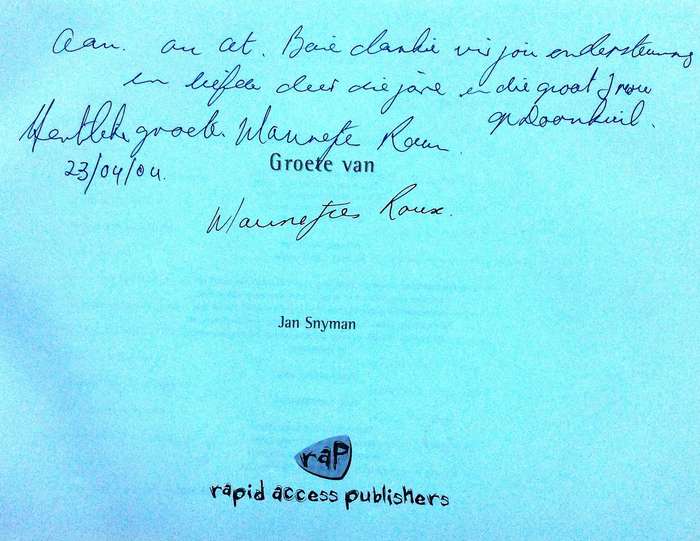 Aan. an et. Baie dankie vir jou ondersteuning
en liefde deur die jare en die groot
opdoonkuil.
Hartlike groete Mannetjie Roux.
23/04/04.
Groete van
Mannetjies Roux.
Jan Snyman
rap
rapid access publishers